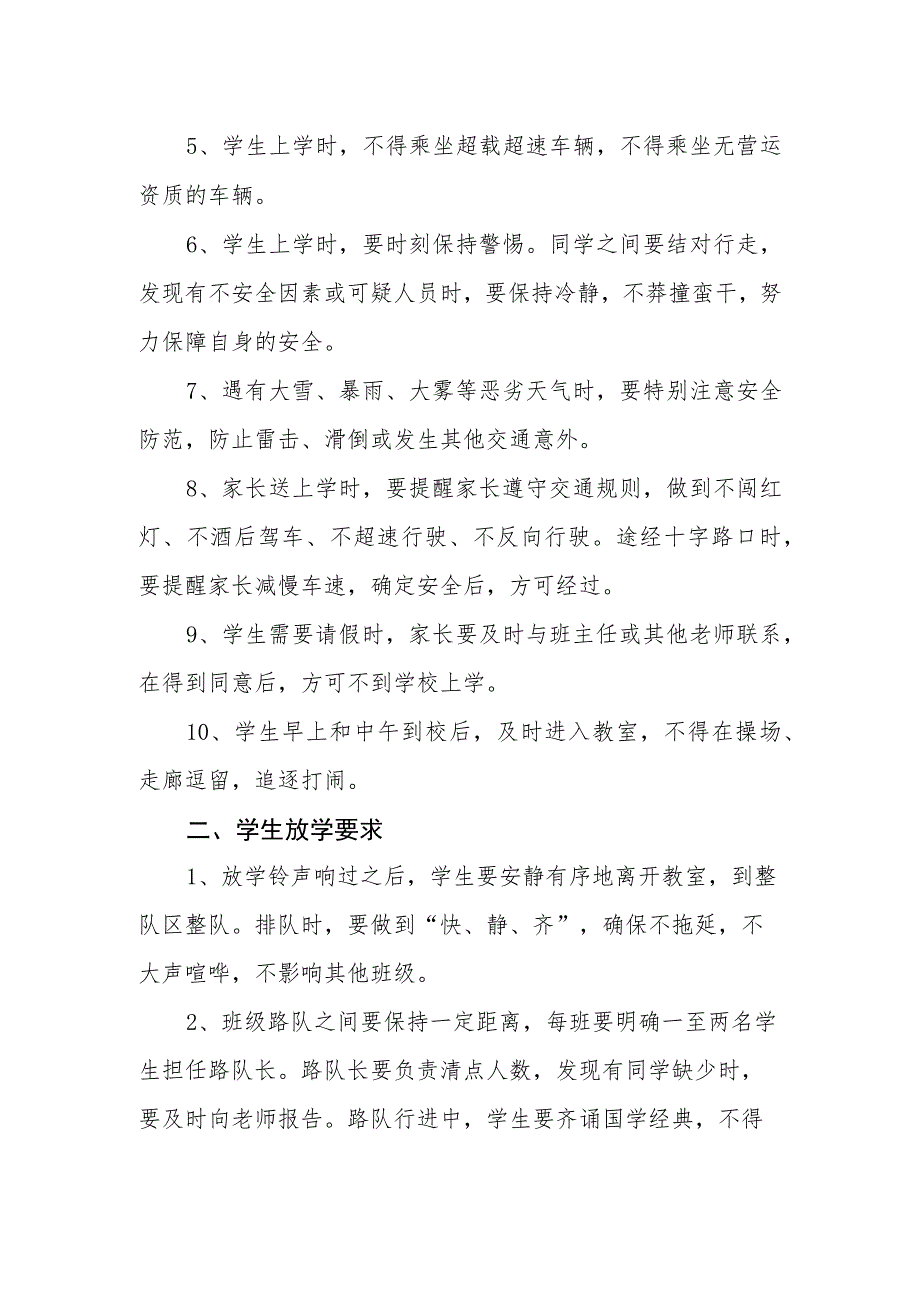 5、学生上学时，不得乘坐超载超速车辆，不得乘坐无营运
资质的车辆。
6、学生上学时，要时刻保持警惕。同学之间要结对行走，
发现有不安全因素或可疑人员时，要保持冷静，不莽撞蛮干，努
力保障自身的安全。
7、遇有大雪、暴雨、大雾等恶劣天气时，要特别注意安全
防范，防止雷击、滑倒或发生其他交通意外。
8、家长送上学时，要提醒家长遵守交通规则，做到不闯红
灯、不酒后驾车、不超速行驶、不反向行驶。途经十字路口时，
要提醒家长减慢车速，确定安全后，方可经过。
9、学生需要请假时，家长要及时与班主任或其他老师联系，
在得到同意后，方可不到学校上学。
10、学生早上和中午到校后，及时进入教室，不得在操场、
走廊逗留，追逐打闹。
二、学生放学要求
1、放学铃声响过之后，学生要安静有序地离开教室，到整
队区整队。排队时，要做到“快、静、齐”，确保不拖延，不
大声喧哗，不影响其他班级。
2、班级路队之间要保持一定距离，每班要明确一至两名学
生担任路队长。路队长要负责清点人数，发现有同学缺少时，
要及时向老师报告。路队行进中，学生要齐诵国学经典，不得